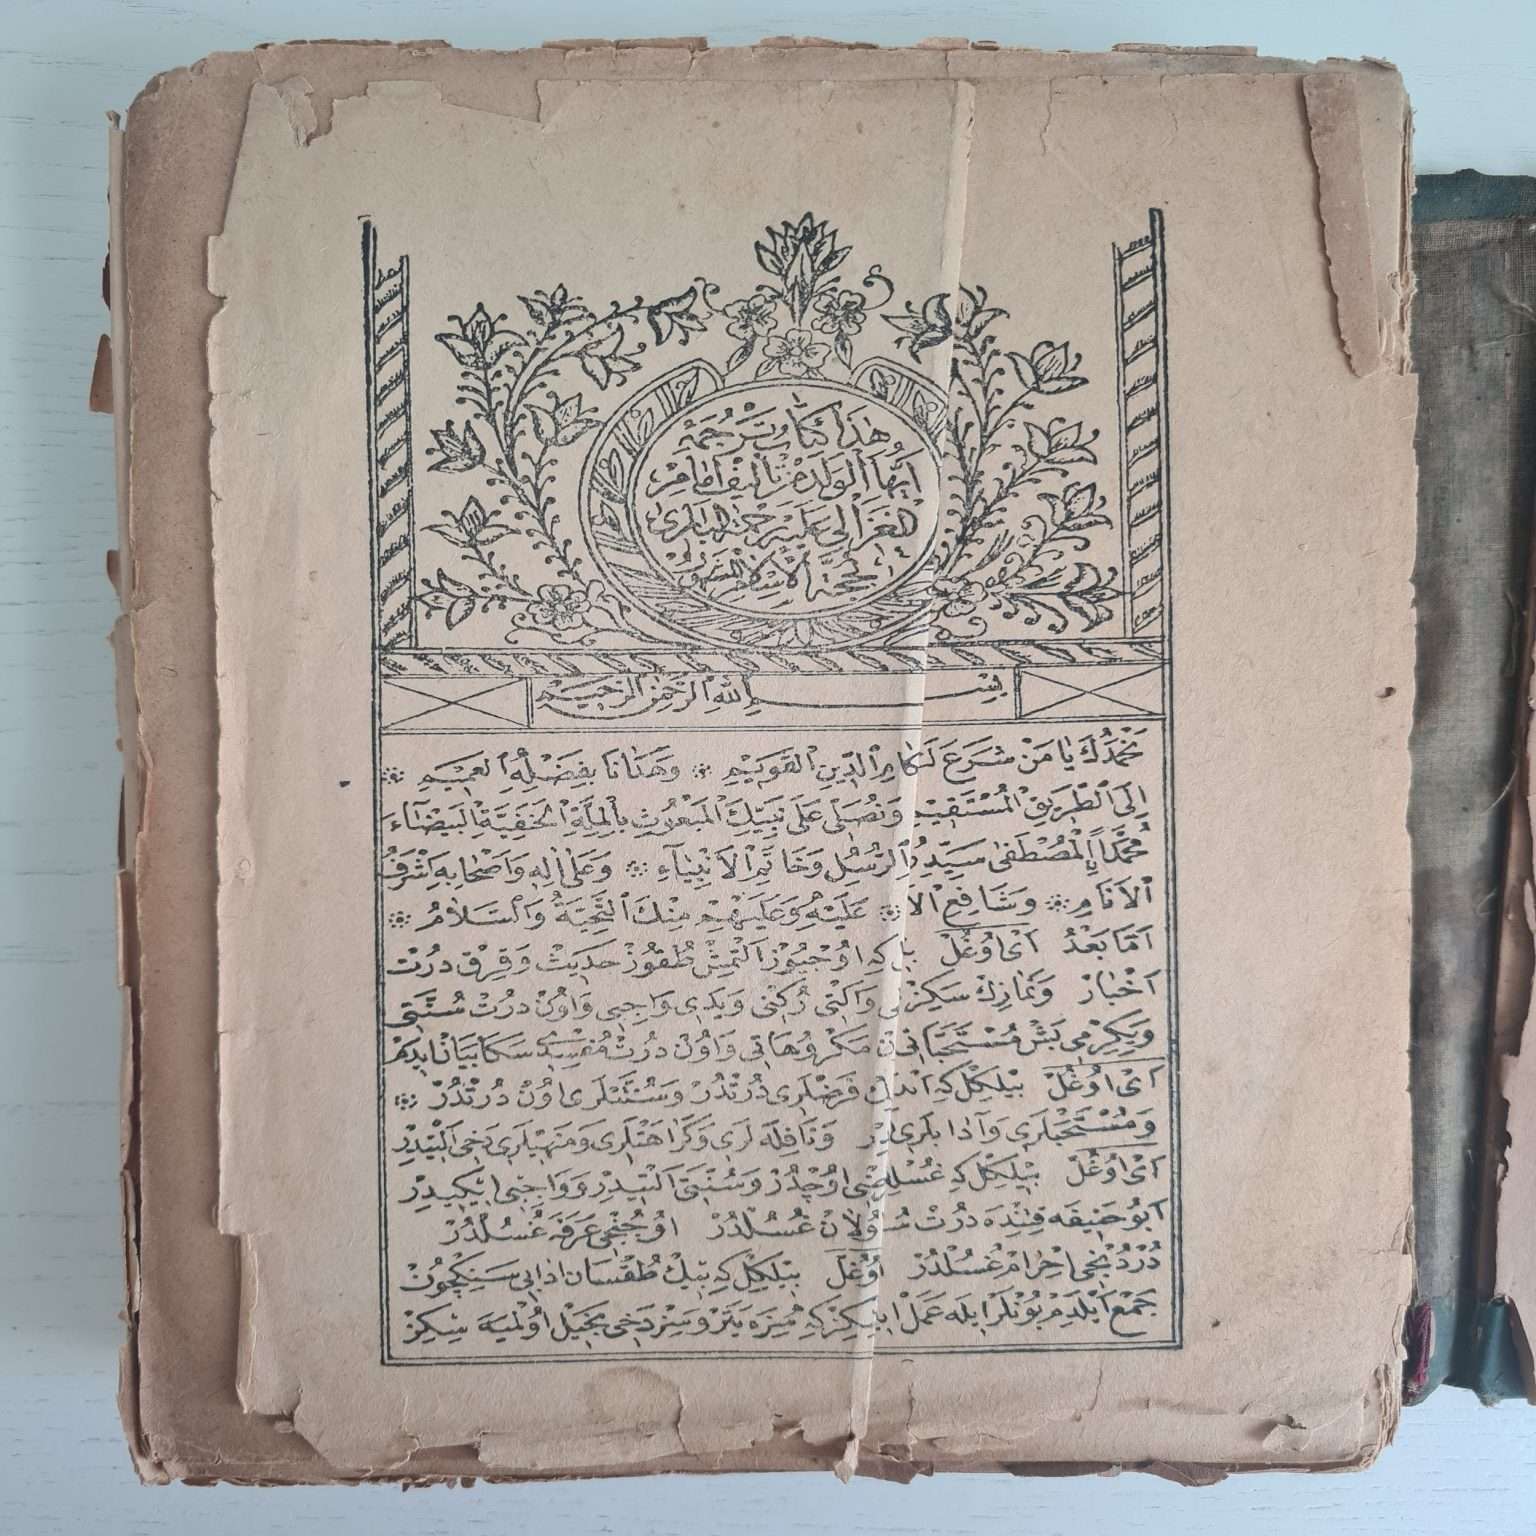 هَذَا كِتَابُ تَرْجُمَهِٔ
اَيُّهَا الْوَلَدْ مِنْ تَأْلِيفِ اِمَامِ
الْغَزَالِى عَلَيْهِ رَحْمَةُ الْبَارِى
بِحُجَّةِ الْاِسْلَامِ الْمَشْهُورْ
بِسْمِ اللهِ الرَّحْمٰنِ الرَّحِيمِ
نَحْمَدُكَ يَا مَنْ شَرَعَ لَنَا الدِّينَ الْقَوِيمِ ❊ وَهَدٰانَا بِفَضْلِهِ الْعَمِيمِ ❊
اِلَى الطَّرِيقِ الْمُسْتَقِيمِ وَنُصَلِّى عَلَى نَبِيِّكَ الْمَبْعُوثِ بِالْمِلَّةِ الْحَنَفِيَّةِ الْبَيْضَٓاءَ
مُحَمَّدٍ الْمُصْطَفٰى سَيِّدِ الرُّسُلِ وَخَاتَمِ الْاَنْبِيَآءِ ❊ وَعَلٰى اٰلِهِ وَاَصْحَابِهِ اَشْرَفُ
الْاَنَامِ ❊ وَشَافِعِ ❊ عَلَيْهِ وَعَلَيْهِمْ مِنْكَ التَّحِيَّةُ وَالسَّلَامُ ❊
اَمَّا بَعْدُ اَىْ اُوغُلْ بِل كِه اُوچْيُوزْ اَلْتْمِشْ طُقُوزْ حَدِيثْ وَقِرْقْ دُرْتْ
اَخْبَارْ وَنَمَازِڭْ سَكِزْ وَاَلْتِى رُكْنِى وَيَدِى وَاجِبِى وَاُونْ دُرْتْ سُنَّتِى
وَيِكِرْمِى بَشْ مُسْتَحَبَّاتِى مَكْرُوهَاتِى وَاُونْ دُرْتْ مُفْسِدِى سَكَا بَيَانْ ايدَمْ
اَىْ اُوغُلْ بِيلْكِلْ كِه فَرْضْلَرِى دُرْتْدُرْ وَسُنَّتْلَرِى اُونْ دُرْتْدُرْ ❊
وَمُسْتَحَبْلَرِى وَاٰدَابْلَرِى وَنَافِلَه لَرِى وَكَرَاهَتْلَرِى وَمَنْهِيلَرِى دَخِى اَلْتِيدِرْ
اَىْ اُوغُلْ بِيلْكِلْ كِه غُسْلِڭْ اُوچْدُرْ وَسُنَّتِى اَلْتِيدِرْ وَوَاجِبِى اِيكِيدِرْ
اَبُو حَنِيفَه قَتِنْدَه دُرْتْ اُولَانْ غُسُلْدُرْ اُوچُنْجِى عَرَفَه غُسُلْدُرْ
دُرْدُنْجِى اِحْرَامْ غُسُلْدُرْ اُوغُلْ بِيلْكِلْ كِه بِيڭْ طُقْسَانْ اَدَابِى سَنِكْچُونْ
جَمْعْ اَيْلَدِمْ بُونْلَرْ اِيلَه عَمَلْ كِه سِزَه يَتَرْ وَسِزْ دَخِى بَخِيلْ اُولْمَيَه سِكِزْ